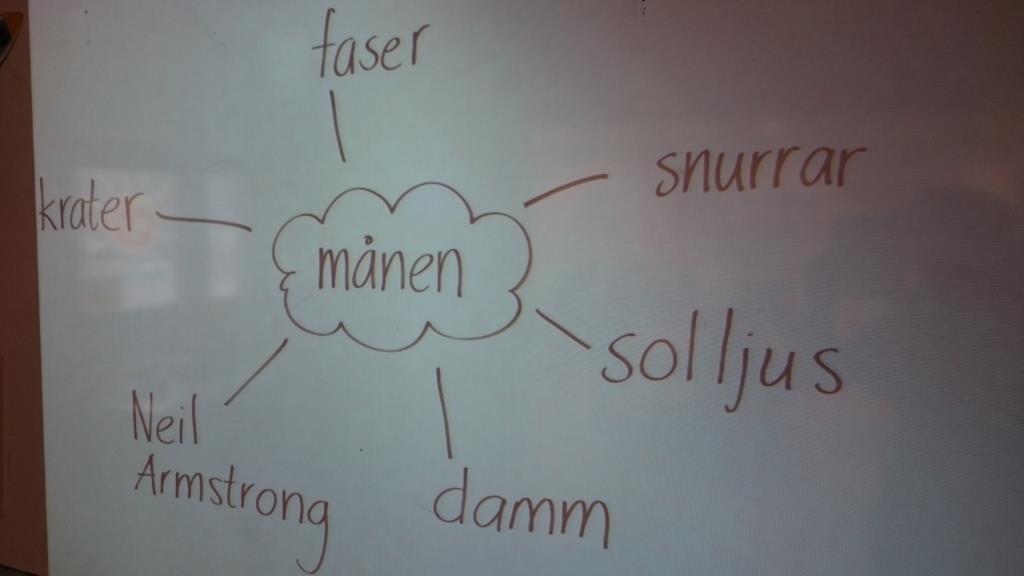 faser
snurrar
krater
månen
solljus
Neil
Armstrong
damm